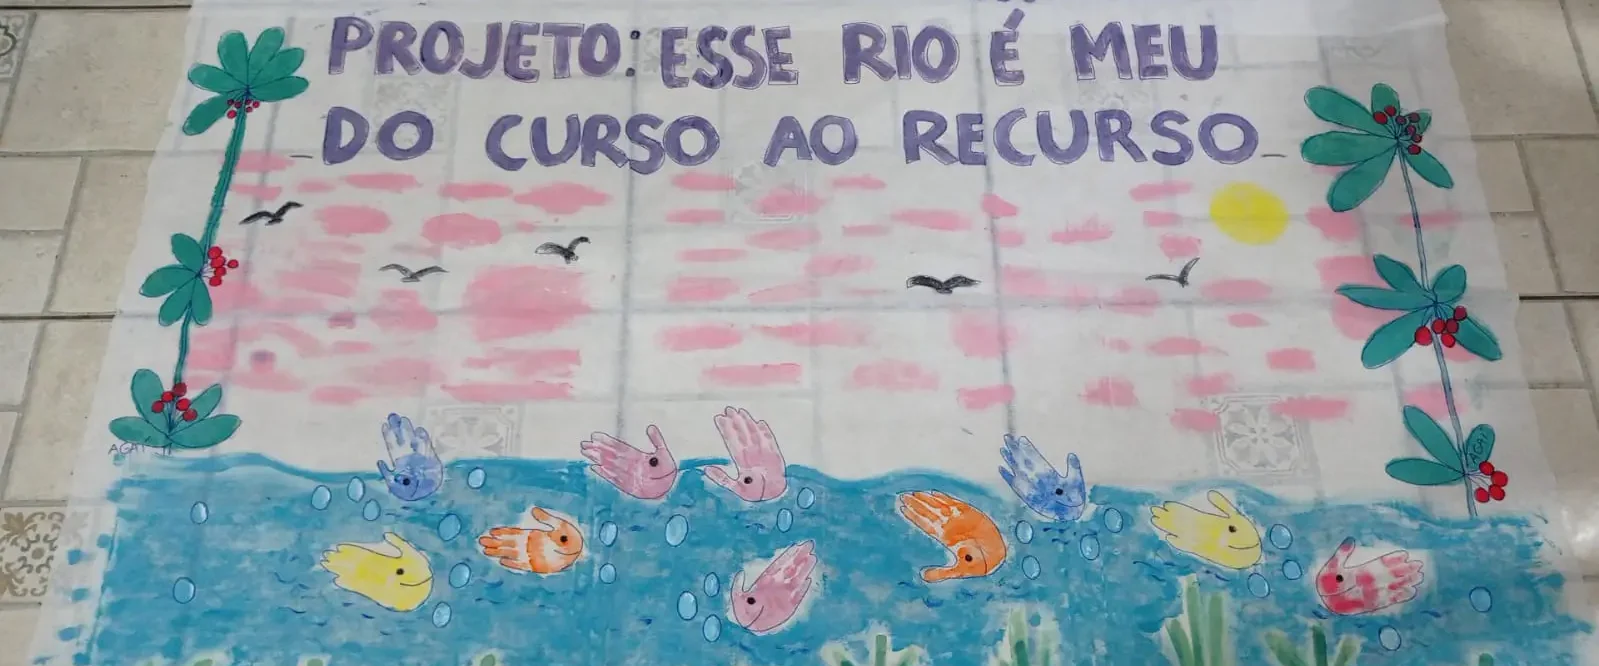 PROJETO: ESSE RIO É MEU
DO CURSO AO RECURSO